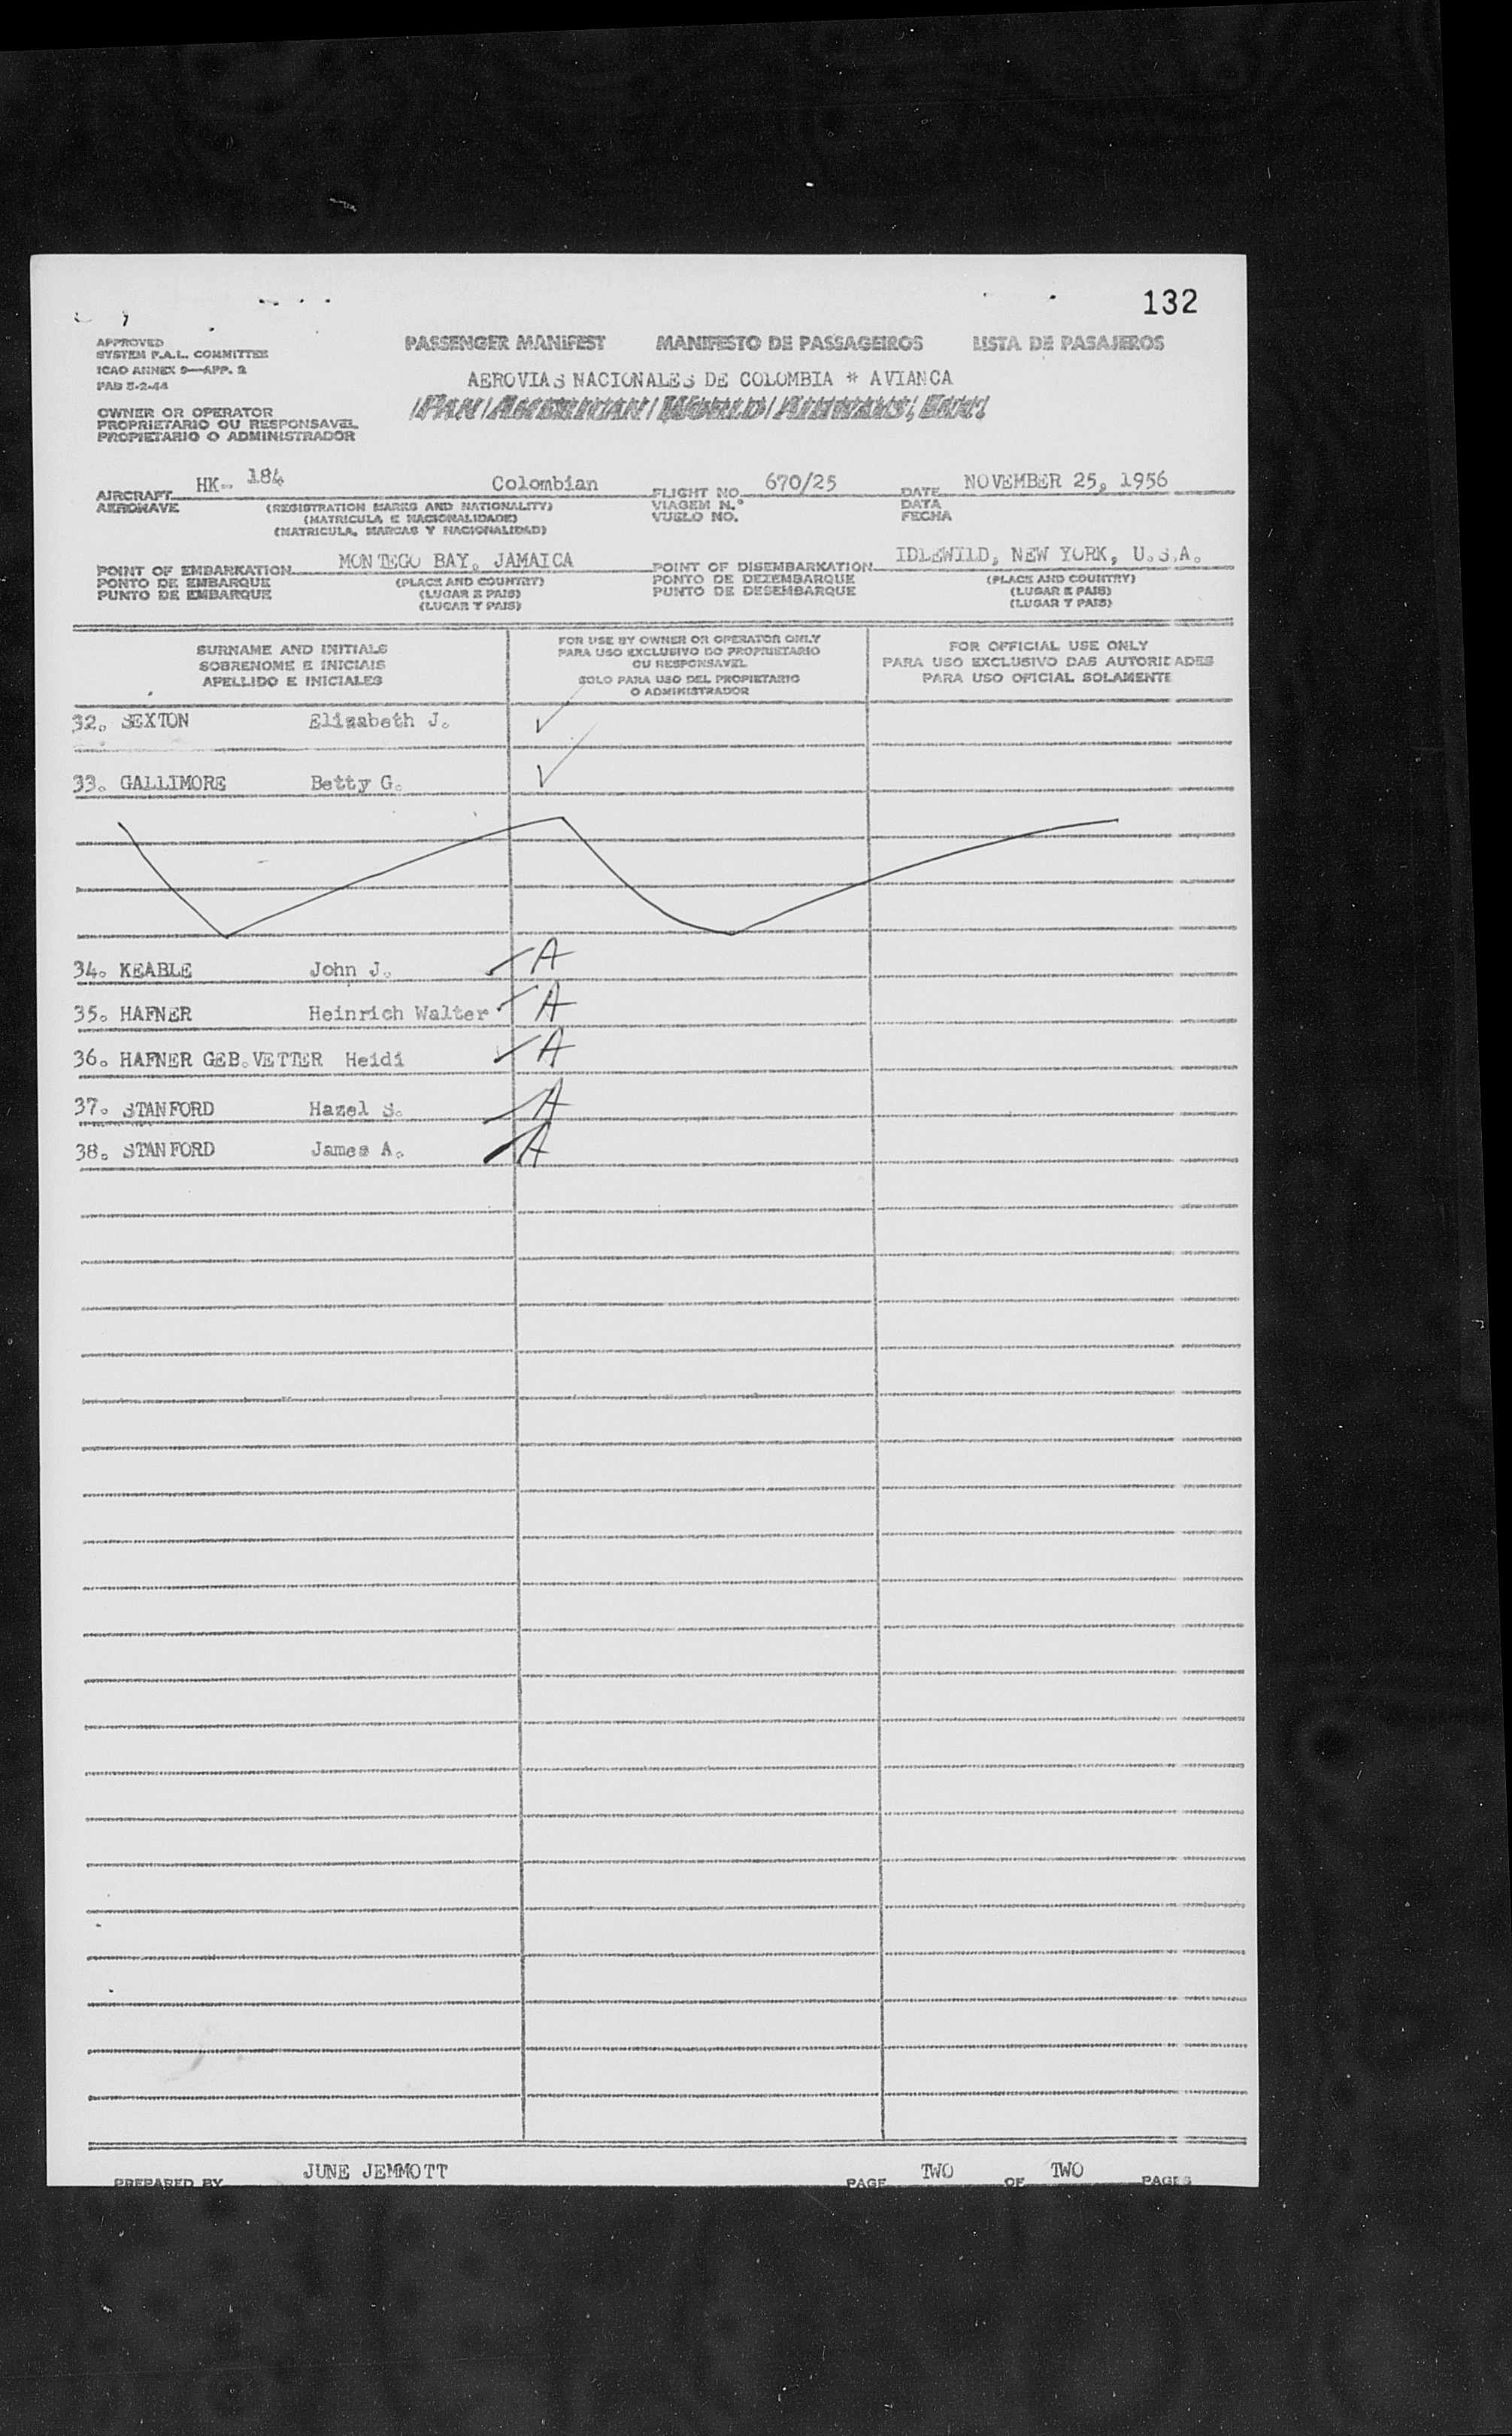 132
APPROVED
SYSTEM F.A.L. COMMITTEE
ICAO ANNEX 9—APP. 2
PAB 5-2-44
PASSENGER MANIFEST MANIFESTO DE PASSAGEIROS LISTA DE PASAJEROS
AEROVIAS NACIONALES DE COLOMBIA * AVIANCA
PAN AMERICAN WORLD AIRWAYS, INC.
OWNER OR OPERATOR
PROPRIETARIO OU RESPONSAVEL
PROPIETARIO O ADMINISTRADOR
AIRCRAFT HK- 184 Colombian FLIGHT NO. 670/25 DATE NOVEMBER 25, 1956
AERONAVE (REGISTRATION MARKS AND NATIONALITY) VIAGEM N.° DATA
(MATRICULA E NACIONALIDADE) VUELO NO. FECHA
(MATRICULA, MARCAS Y NACIONALIDAD)
POINT OF EMBARKATION MONTEGO BAY, JAMAICA POINT OF DISEMBARKATION IDLEWILD, NEW YORK, U.S.A.
PONTO DE EMBARQUE (PLACE AND COUNTRY) PONTO DE DEZEMBARQUE (PLACE AND COUNTRY)
PUNTO DE EMBARQUE (LUGAR E PAIS) PUNTO DE DESEMBARQUE (LUGAR E PAIS)
(LUGAR Y PAIS) (LUGAR Y PAIS)
SURNAME AND INITIALS
SOBRENOME E INICIAIS
APELLIDO E INICIALES
FOR USE BY OWNER OR OPERATOR ONLY
PARA USO EXCLUSIVO DO PROPRIETARIO
OU RESPONSAVEL
SOLO PARA USO DEL PROPIETARIO
O ADMINISTRADOR
FOR OFFICIAL USE ONLY
PARA USO EXCLUSIVO DAS AUTORIDADES
PARA USO OFICIAL SOLAMENTE
32. SEXTON Elizabeth J.
33. GALLIMORE Betty G.
34. KEABLE John J. A
35. HAFNER Heinrich Walter A
36. HAFNER GEB.VETTER Heidi A
37. STANFORD Hazel S. A
38. STANFORD James A. A
PREPARED BY JUNE JEMMOTT PAGE TWO OF TWO PAGES